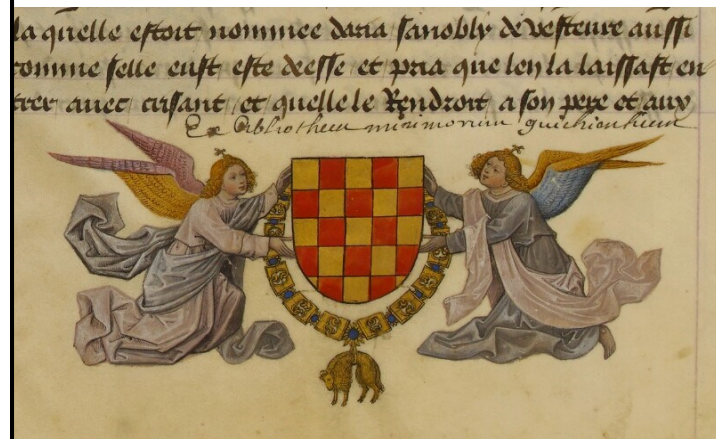 la quelle estoit nommee daria sanobly de vesteure aussi
comme selle eust este deesse et pria que len la laissast en
trer avec crisant et quelle le Rendroit a son pere et aux
Ex Bibliotheca minimorum guichiensium